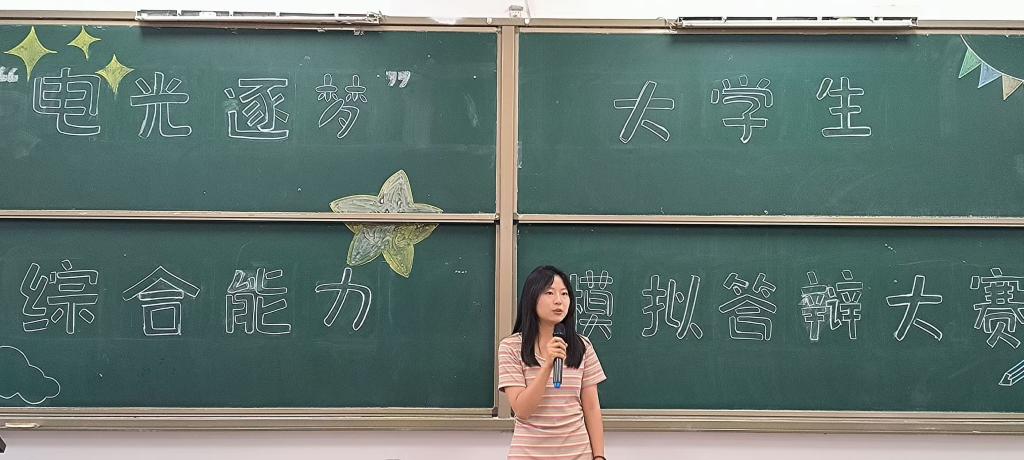 “电光逐梦” 大学生
综合能力 模拟答辩大赛